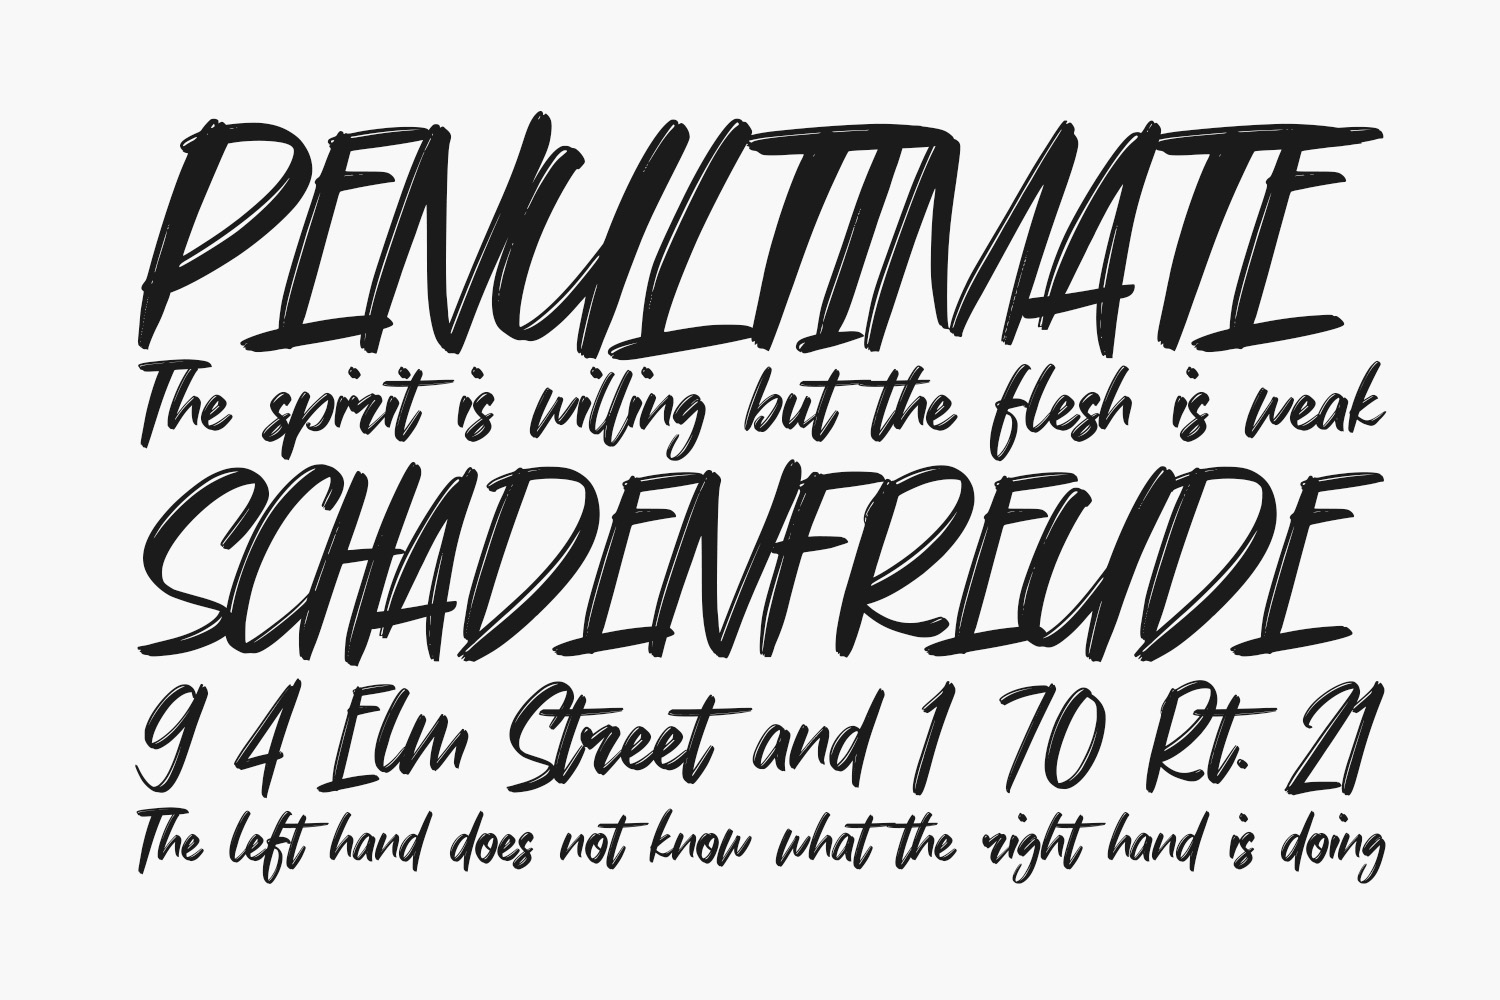 PENULTIMATE
The spirit is willing but the flesh is weak
SCHADENFREUDE
94 Elm Street and 170 Rt. 21
The left hand does not know what the right hand is doing